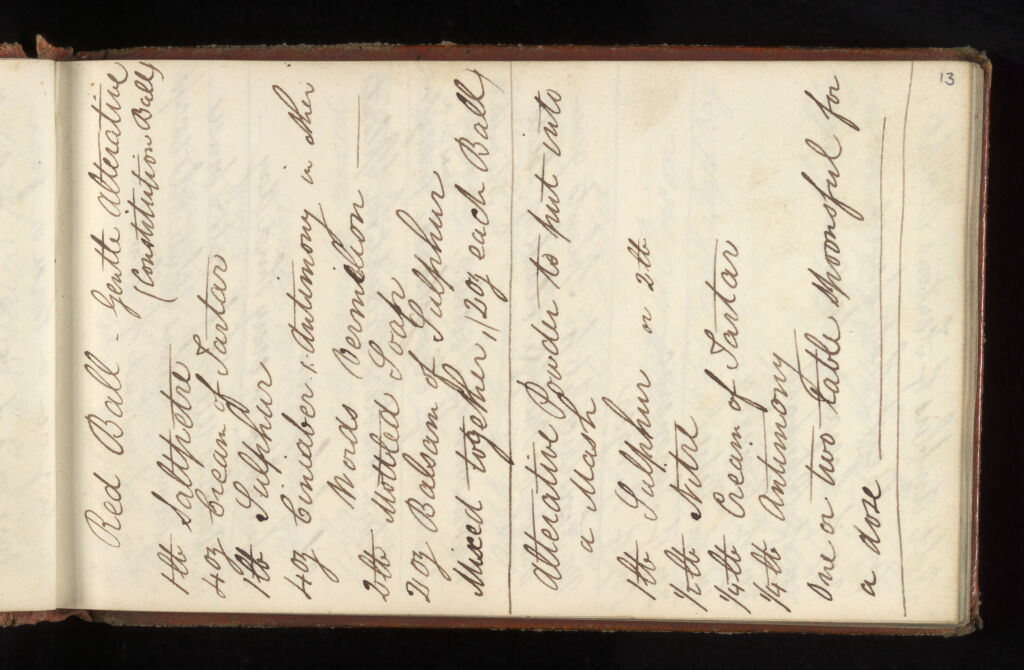 13
Red Ball - Gentle Alterative
(Constitution Ball)
1 lb Saltpetre
4oz Cream of Tartar
1 lb Sulphur
4oz Ciniaber :. Antimony in other
Words Vermilion —
2 lb Mottled Soap
2oz Balsam of Sulphur
Mixed together, 1 2oz each Ball /
Alterative Powder to put into
a Mash
1 lb Sulphur or 2 lb
1/2 lb Nitre
1/4 lb Cream of Tartar
1/4 lb Antimony
One or two table spoonsful for
a dose